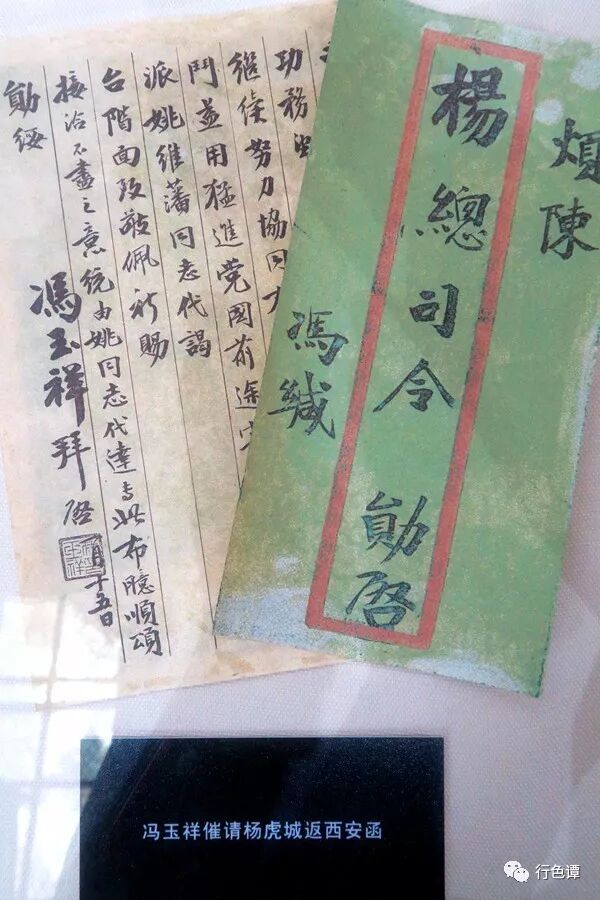 功務
继续努力協同
鬥並用猛進党國前途
派姚维藩同志代謁
台階面致敬佩祈賜
接洽不盡之意統由姚同志代達专此布臆順頌
勛綏
馮玉祥拜啓
十五日
煩陳
楊總司令 勛啓
馮缄
冯玉祥催请杨虎城返西安函
行色谭